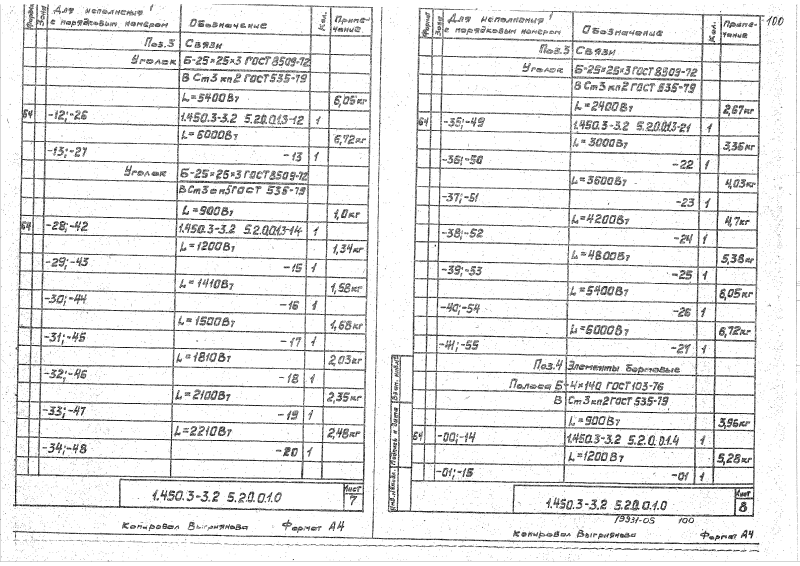 Формат
Зона
Для исполнения
с порядковым номером
Обозначение
Кол.
Примечание
Поз.3 Связи
Уголок Б-25×25×3 ГОСТ 8509-72
В Ст3кп2 ГОСТ 535-79
L=5400Вт 6,05кг
64 -12;-26 1.450.3-3.2 5.2.0.0.1.3-12 1
L=6000Вт 6,72кг
-13;-27 -13 1
Уголок Б-25×25×3 ГОСТ 8509-72
В Ст3сп5 ГОСТ 535-79
L=900Вт 1,0кг
64 -28;-42 1.450.3-3.2 5.2.0.0.1.3-14 1
L=1200Вт 1,34кг
-29;-43 -15 1
L=1410Вт 1,58кг
-30;-44 -16 1
L=1500Вт 1,68кг
-31;-45 -17 1
L=1810Вт 2,03кг
-32;-46 -18 1
L=2100Вт 2,35кг
-33;-47 -19 1
L=2210Вт 2,48кг
-34;-48 -20 1
1.450.3-3.2 5.2.0.0.1.0
Лист
7
Копировал Выгриянова Формат А4
100
Формат
Зона
Для исполнения
с порядковым номером
Обозначение
Кол.
Примечание
Поз.3 Связи
Уголок Б-25×25×3 ГОСТ 8509-72
В Ст3кп2 ГОСТ 535-79
L=2400Вт 2,67кг
64 -35;-49 1.450.3-3.2 5.2.0.0.1.3-21 1
L=3000Вт 3,36кг
-36;-50 -22 1
L=3600Вт 4,03кг
-37;-51 -23 1
L=4200Вт 4,7кг
-38;-52 -24 1
L=4800Вт 5,38кг
-39;-53 -25 1
L=5400Вт 6,05кг
-40;-54 -26 1
L=6000Вт 6,72кг
-41;-55 -27 1
Поз.4 Элементы бортовые
Полоса Б-4×140 ГОСТ 103-76
В Ст3кп2 ГОСТ 535-79
L=900Вт 3,96кг
64 -00;-14 1.450.3-3.2 5.2.0.0.1.4 1
L=1200Вт 5,28кг
-01;-15 -01 1
Инв.№подл. Подпись и дата Взам. инв.№
1.450.3-3.2 5.2.0.0.1.0
Лист
8
19931-05 100
Копировал Выгриянова Формат А4